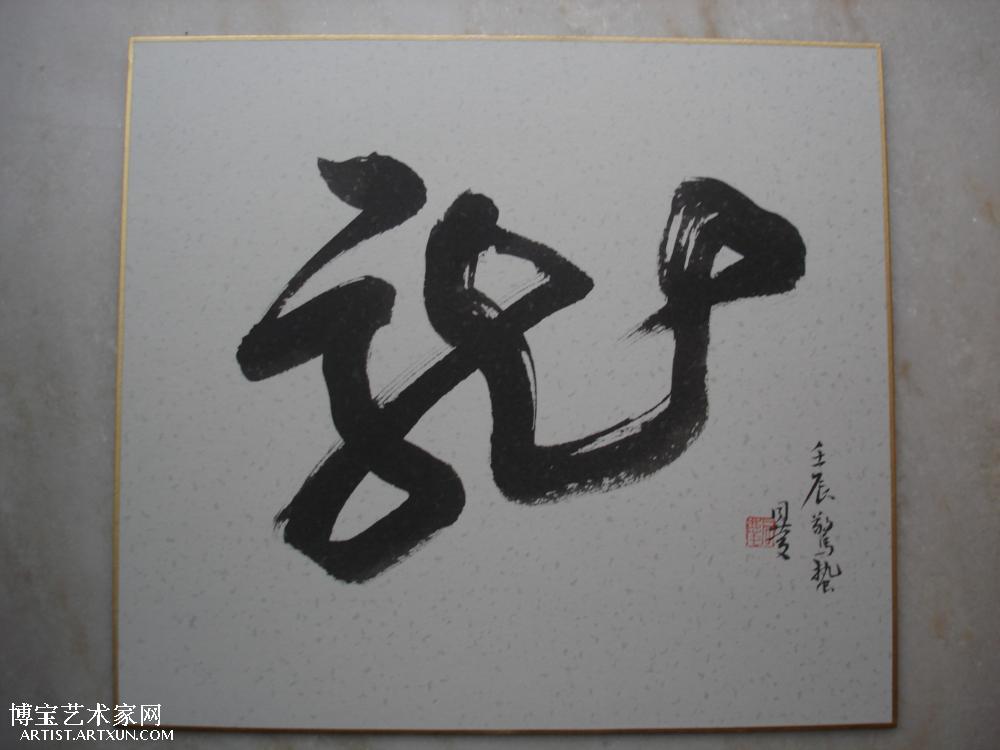 龍
壬辰驚蟄
博宝艺术家网
ARTIST.ARTXUN.COM